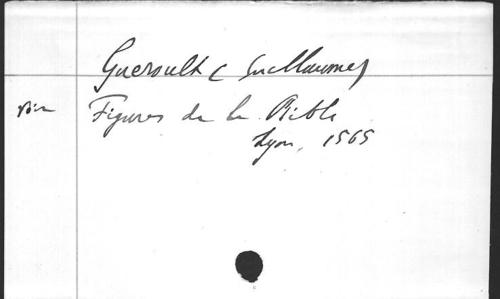 Gueroult (Guillaume)
Figures de la Bible
Lyon, 1565